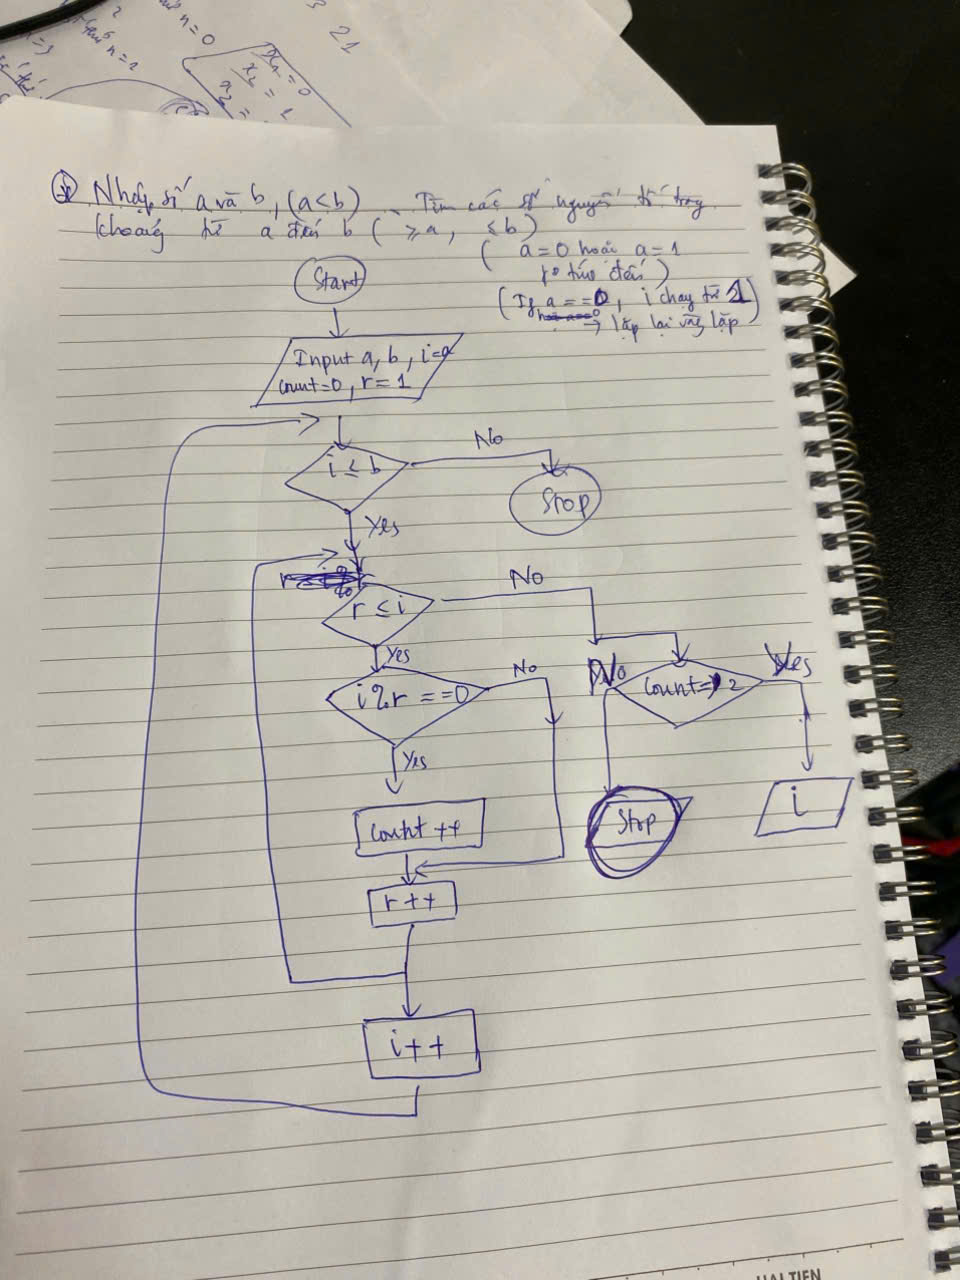 n=0
21
n=1
x₁=0
x₂=1
Nhập số a và b, (a<b). Tìm các số nguyên tố trong
khoảng từ a đến b ( ≥a, ≤b)
( a=0 hoặc a=1
đến)
(If a==0, i chạy từ 1)
→ lặp lại vòng lặp
Start
Input a, b, i=a
count=0, r=1
i ≤ b
No
Stop
Yes
r ≤ i
No
Yes
i%r ==0
No
No
count= 2
Yes
Yes
count ++
Stop
i
r++
i++
HẢI TIẾN